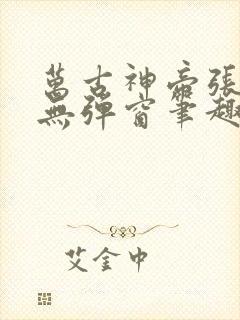 萬古神帝張
無彈窗筆趣
艾金中